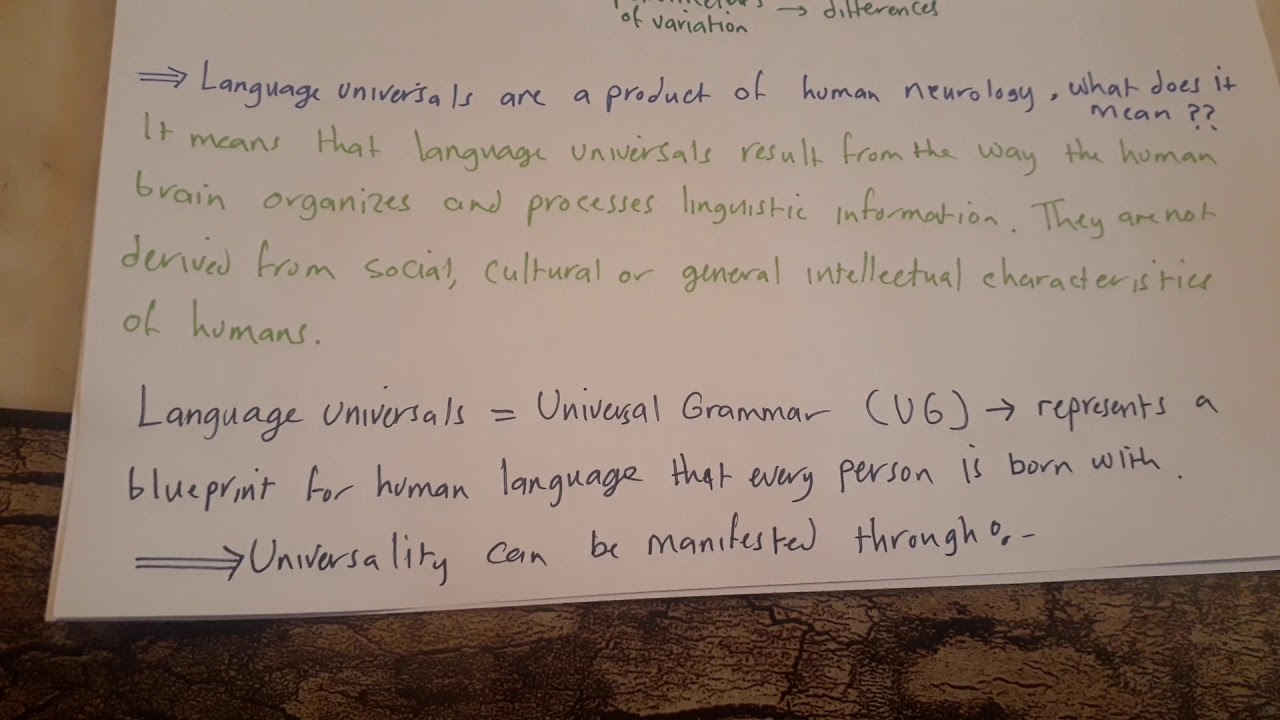 of variation → differences
⇒ Language universals are a product of human neurology, what does it
mean ??
It means that language universals result from the way the human
brain organizes and processes linguistic information. They are not
derived from social, cultural or general intellectual characteristics
of humans.
Language universals = Universal Grammar (UG) → represents a
blueprint for human language that every person is born with.
⇒ Universality can be manifested through :-